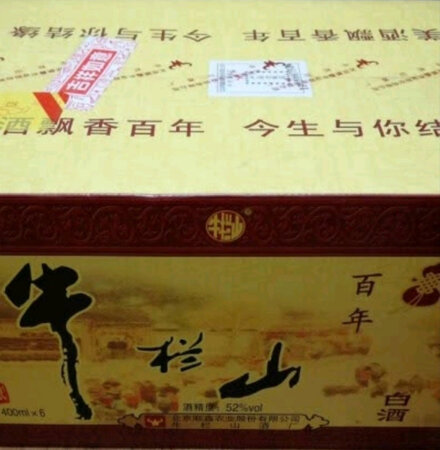 美酒飘香百年 今生与你结缘
吉祥如意
酒飘香百年 今生与你结
牛栏山
百年
牛栏山
白酒
400ml×6
酒精度：52%vol
北京顺鑫农业股份有限公司
牛栏山酒厂